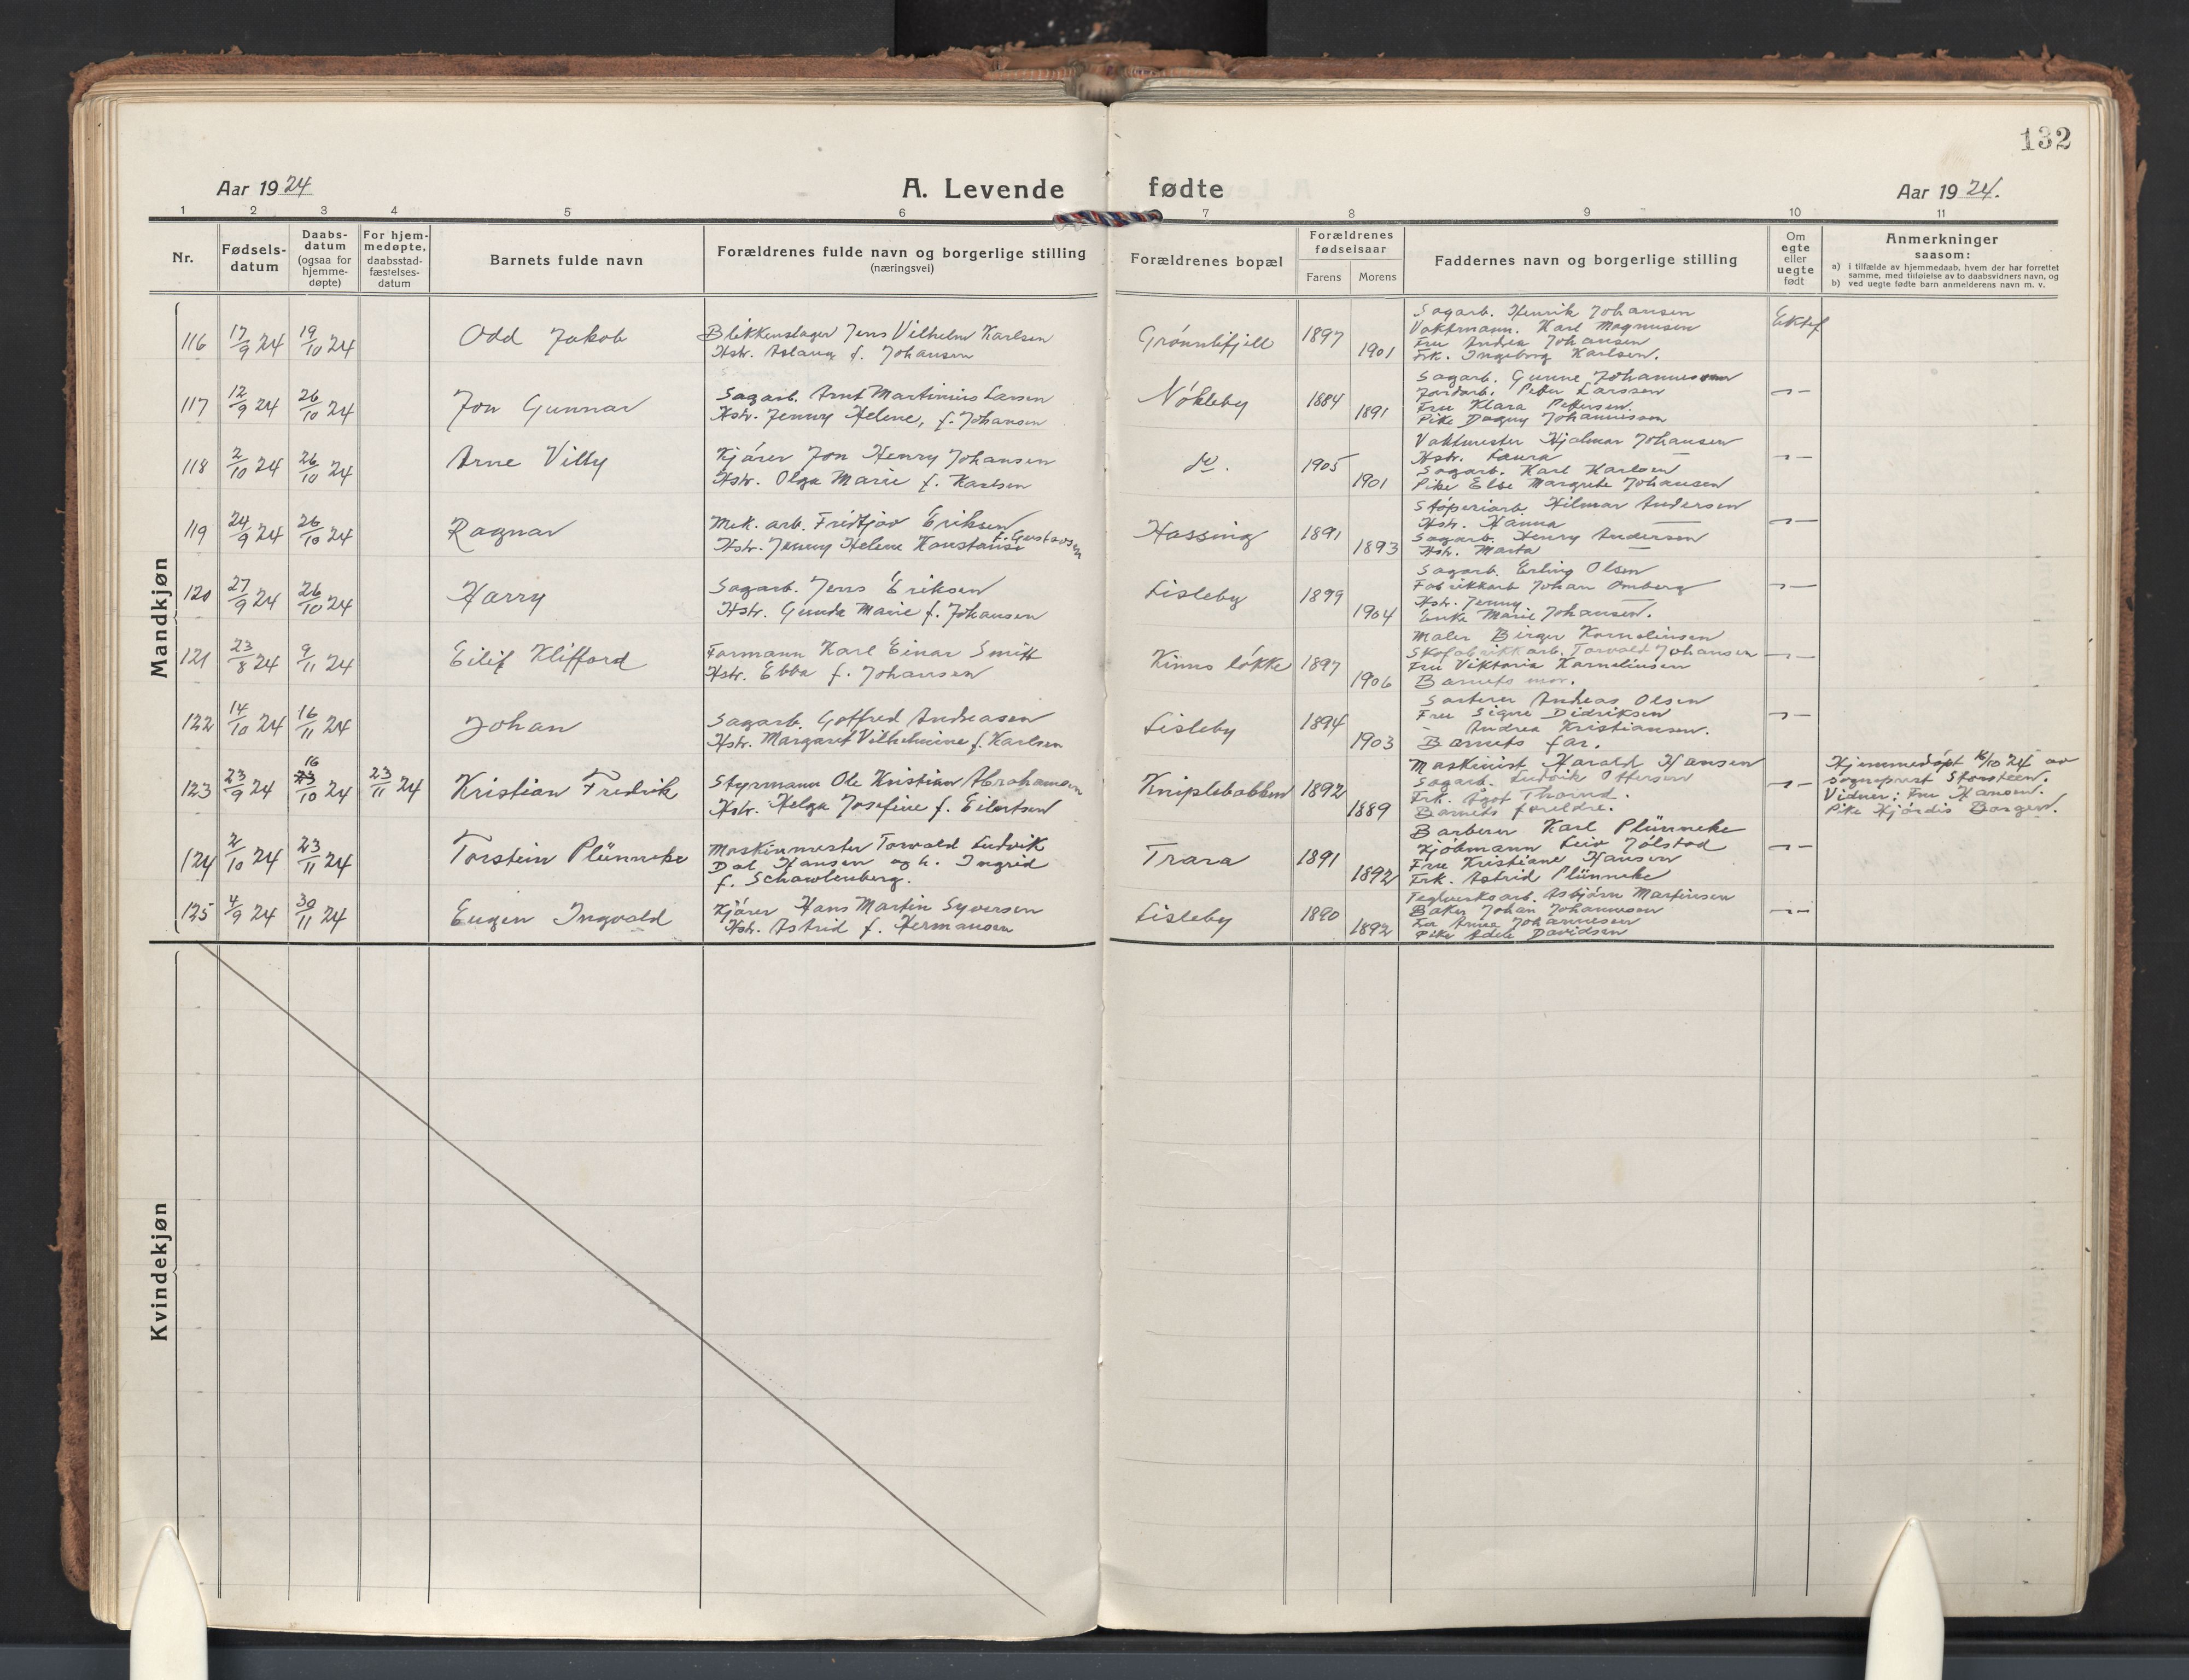 132
Aar 1924
A. Levende fødte
Aar 1924.
1 2 3 4 5 6 7 8 9 10 11
Nr.
Fødsels-
datum
Daabs-
datum
(ogsaa for
hjemme-
døpte)
For hjem-
medøpte,
daabsstad-
fæstelses-
datum
Barnets fulde navn
Forældrenes fulde navn og borgerlige stilling
(næringsvei)
Forældrenes bopæl
Forældrenes
fødselsaar
Farens Morens
Faddernes navn og borgerlige stilling
Om
egte
eller
uegte
født
Anmerkninger
saasom:
a) i tilfælde av hjemmedaab, hvem der har forrettet
samme, med tilføielse av to daabsvidners navn, og
b) ved uegte fødte barn anmelderens navn m. v.
Mandkjøn
116 17/9 24 19/10 24 Odd Jakob
Blikkenslager Jens Vilhelm Karlsen
Hstr. Aslaug f. Johansen
Grønnlifjell 1897 1901
Sagarb. Henrik Johansen
Vaktmann. Karl Magnusen
Fru Andrea Johansen
Frk. Ingeborg Karlsen.
Ektef
117 12/9 24 26/10 24 Jon Gunnar
Sagarb. Arnt Martinius Larsen
Hstr. Jenny Helene, f. Johansen
Nókleby 1884 1891
Sagarb. Gunne Johannessen
Jordarb. Petter Larssen
Fru Klara Pettersen.
Pike Dagny Johannesson
118 2/10 24 26/10 24 Arne Villy
Kjörer Jon Henry Johansen
Hstr. Olga Marie f. Karlsen
do. 1905 1901
Vaktmester Hjalmar Johansen
Hstr. Laura —
Sagarb. Karl Karlsen
Pike Else Margrete Johansen
119 24/9 24 26/10 24 Ragnar
Mek. arb. Fridtjov Eriksen
Hstr. Jenny Helene Konstanse f. Gustavsen
Hassing 1891 1893
Stóperiarb. Hilmar Andersen
Hstr. Hanna —
Sagarb. Henry Andersen
Hstr. Marta —
120 27/9 24 26/10 24 Harry
Sagarb. Jens Eriksen
Hstr. Gunda Marie f. Johansen
Lisleby 1899 1904
Sagarb. Erling Olsen
Fabrikkarb Johan Omberg
Hstr. Jenny —
Enke Marie Johansen.
121 23/8 24 9/11 24 Eilif Klifford
Formann Karl Einar Smitt
Hstr. Ebba f. Johansen
Kinns lökke 1897 1906
Maler Birger Korneliusen
Skofabrikkarb. Torvald Johansen
Fru Viktoria Korneliusen
Barnets mor.
122 14/10 24 16/11 24 Johan
Sagarb. Gotfred Andreasen
Hstr. Margaret Vilhelmine f. Karlsen
Lisleby 1894 1903
Sorterer Andreas Olsen
Fru Signe Didriksen
- Andrea Kristiansen.
Barnets far.
123 23/9 24 16/10 24 23/11 24 Kristian Fredrik
Styrmann Ole Kristian Abrahamsen
Hstr. Helga Josefine f. Eilertsen
Kniplebakken 1892 1889
Maskinist Harald Hansen
Sagarb. Ludvik Ottersen
Frk. Ågot
Barnets foreldre.
Hjemmedópt 16/10 24 av
sogneprest Storsteen.
Vidner: Fru Hansen.
Pike Hjördis Borgen.
124 2/10 24 23/11 24 Torstein Plünneke
Maskinmester Torvald Ludvik
Dal Hansen og h. Ingrid
f. Schawlenberg.
Trara 1891 1892
Barberer Karl Plünneke
Kjöbmann Leiv Jólstad
Fru Kristiane Hansen
Frk. Astrid Plünneke
125 4/9 24 30/11 24 Eugen Ingvald
Kjörer Hans Martin Syversen
Hstr. Astrid f. Hermansen
Lisleby 1890 1892
Teglverksarb. Asbjörn Martinsen
Baker Johan Johannesen
Fru Anna Johannesen
Pike Adele Davidsen
Kvindekjøn